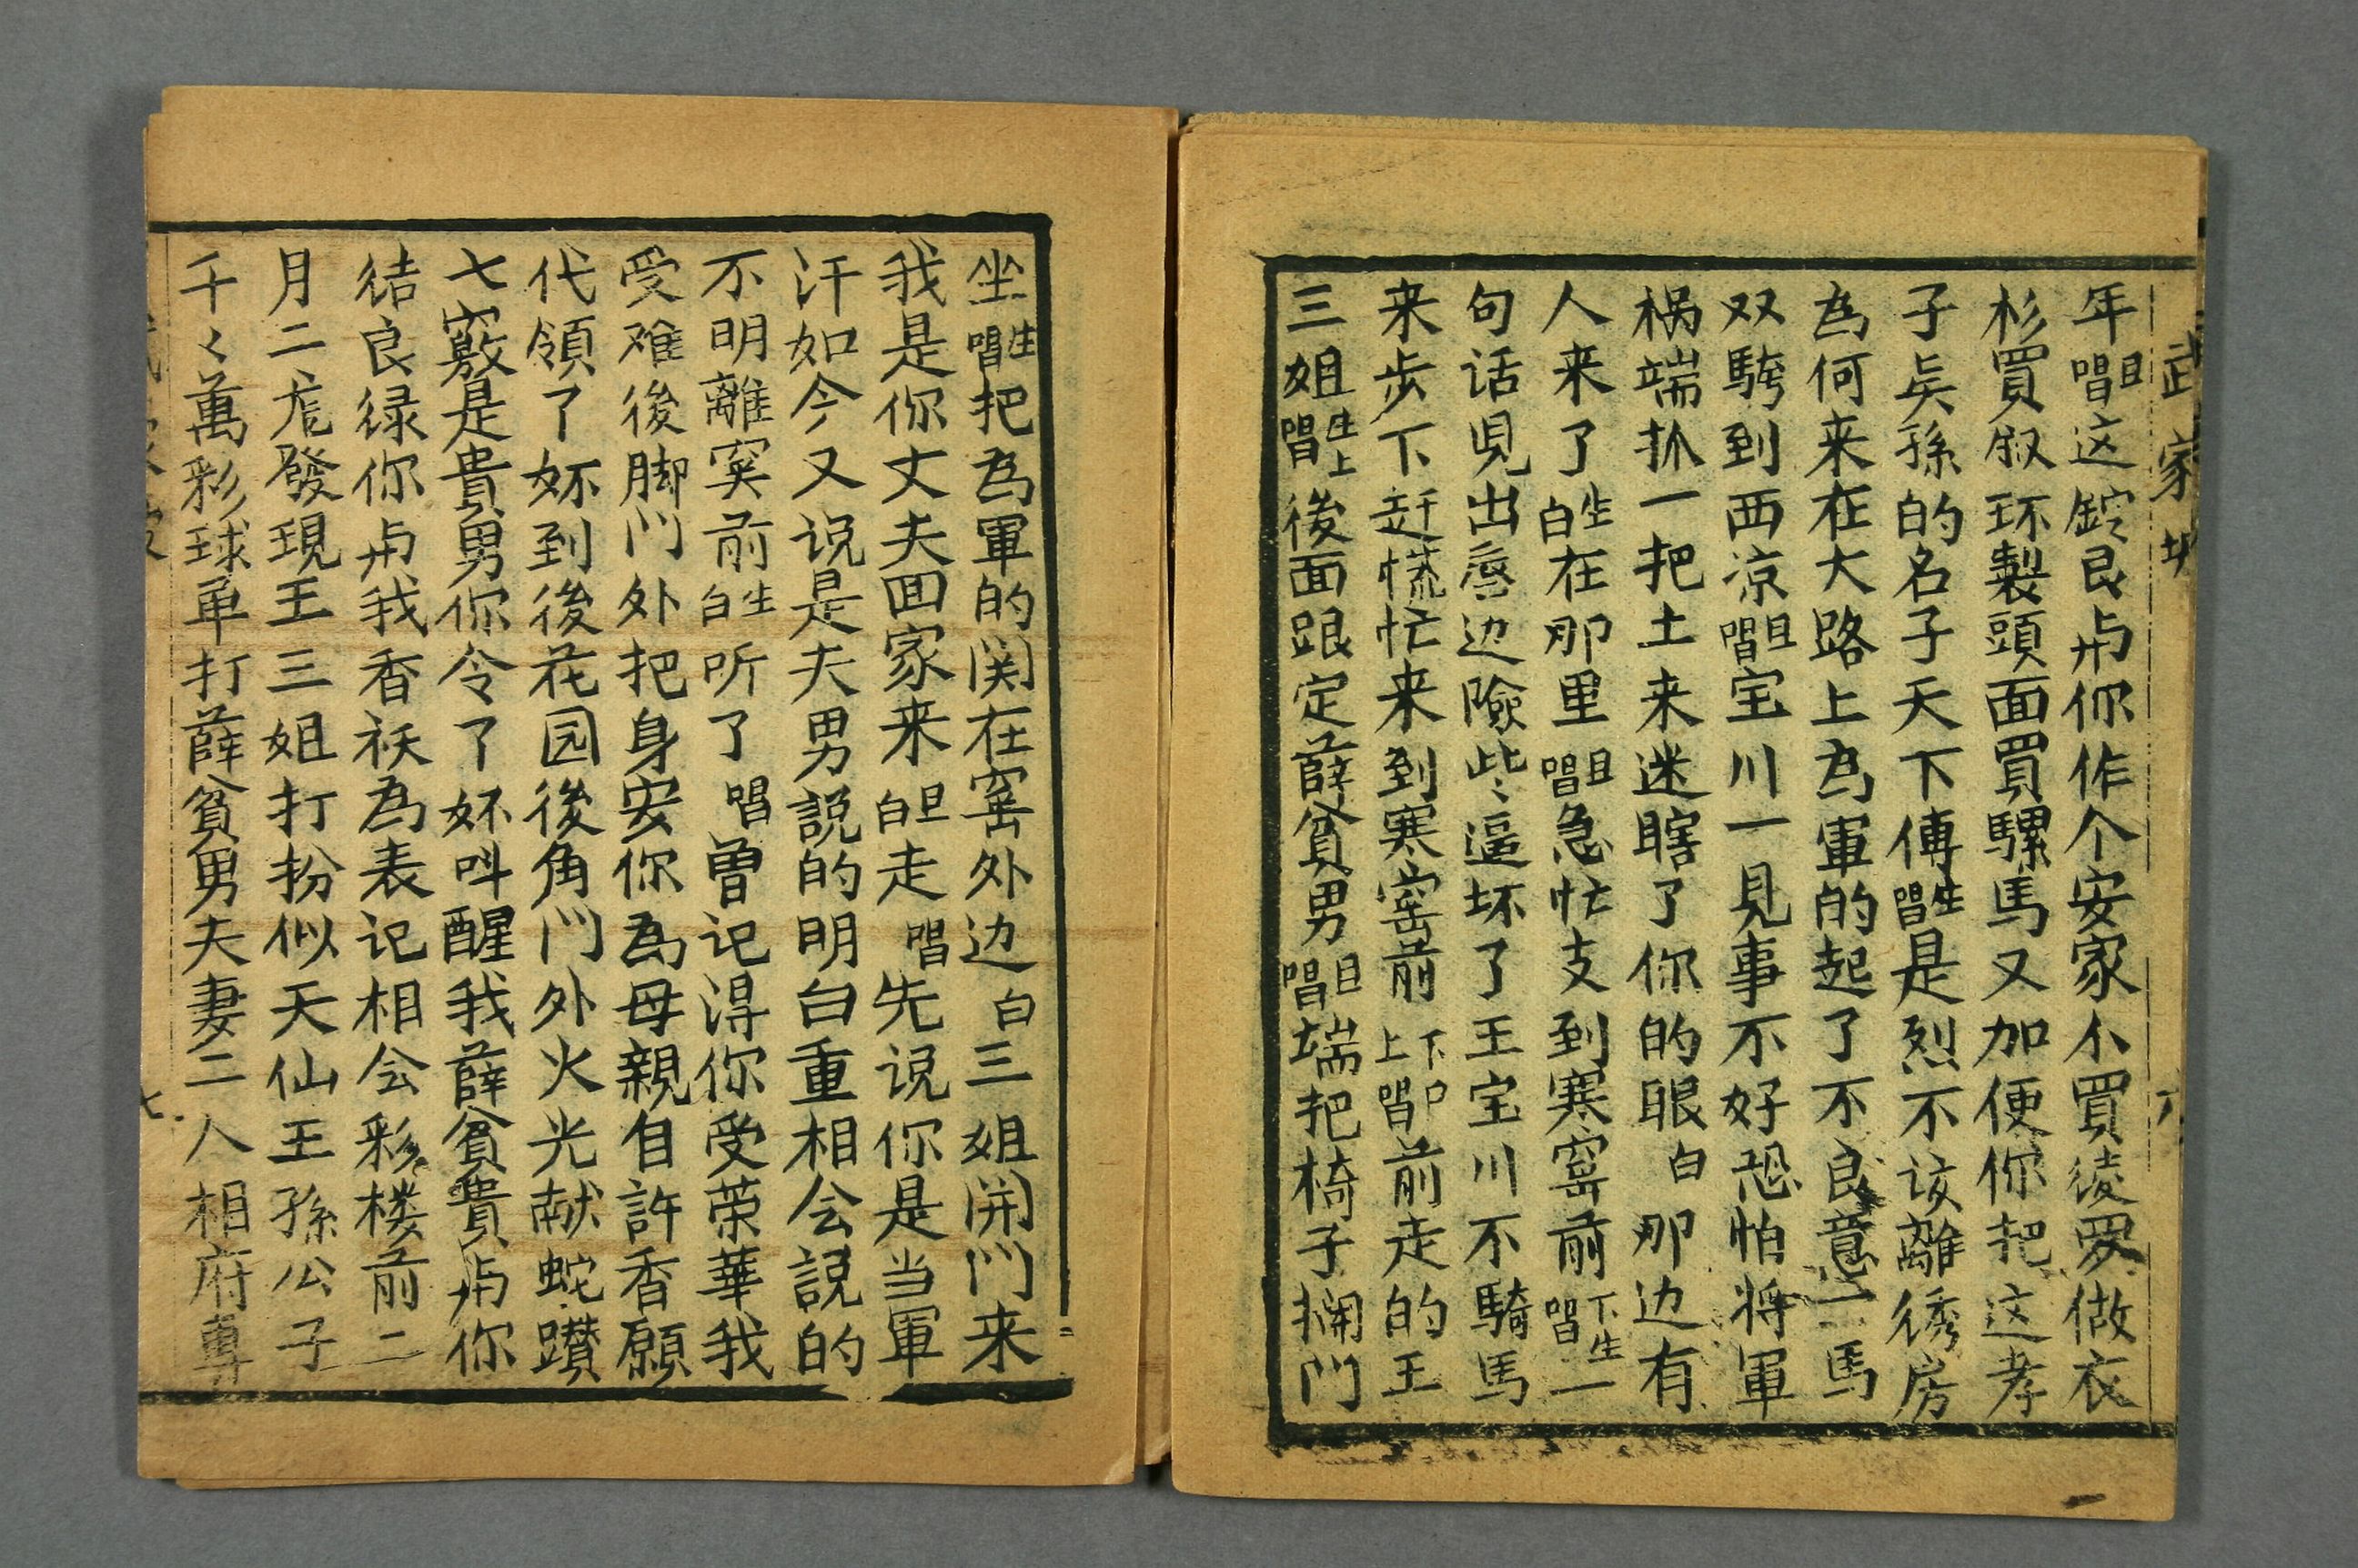 武家坡
六
年旦唱这錠艮与你作个安家小買徒罗做衣
衫買叙环製頭面買騾馬又加便你把这孝
子矣孫的名子天下傅生唱是烈不该離绣房
為何来在大路上為軍的起了不良意一馬
双騎到西凉旦唱宝川一見事不好恐怕将軍
祸端抓一把土来迷瞎了你的眼白那边有
人来了生白在那里旦唱急忙支到寒窑前下生唱一
句话児出唇边險些逼坏了王宝川不騎馬
来步下赶慌忙来到寒窑前下上唱前走的王
三姐生上唱後面跟定薛貧男旦唱端把椅子搁門
坐生唱把為軍的関在窑外边白三姐開门来
我是你丈夫回家来旦白走唱先说你是当軍
汗如今又说是夫男説的明白重相会説的
不明離窑前生白听了唱曾记淂你受荣華我
受难後脚门外把身安你為母親自許香願
代領了妳到後花园後角门外火光献蛇蹟
七竅是貴男你令了妳呌醒我薛貧貴与你
结良緑你与我香袄為表记相会彩楼前二
月二龙發現王三姐打扮似天仙王孫公子
千々萬彩球单打薛貧男夫妻二人相府專
七